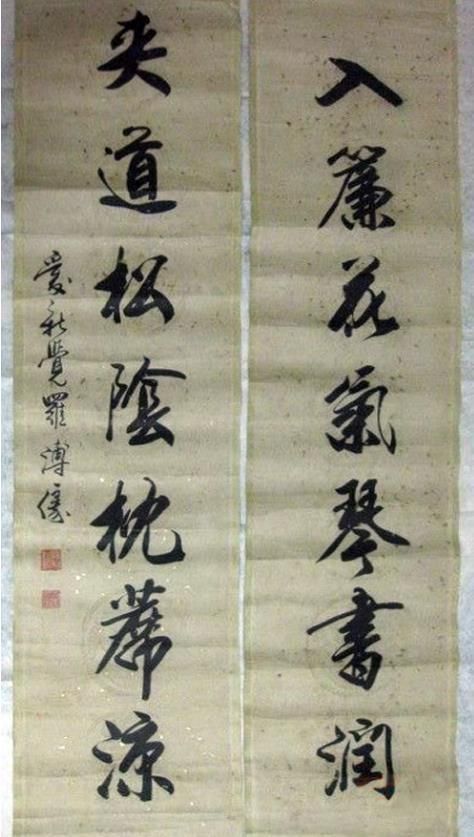 入簾花氣琴書潤
夾道松陰枕蓆涼
愛新覺羅溥儀